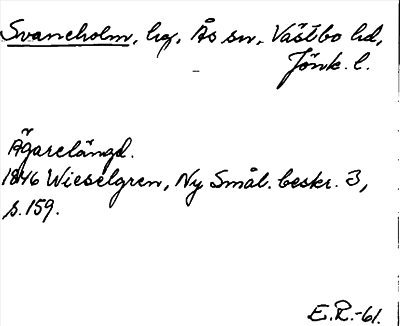 Svaneholm, hg, Ås sn, Västbo hd,
Jönk. l.
Ägarelängd.
1846 Wieselgren, Ny Smål. beskr. 3,
s. 159.
E.R.-61.